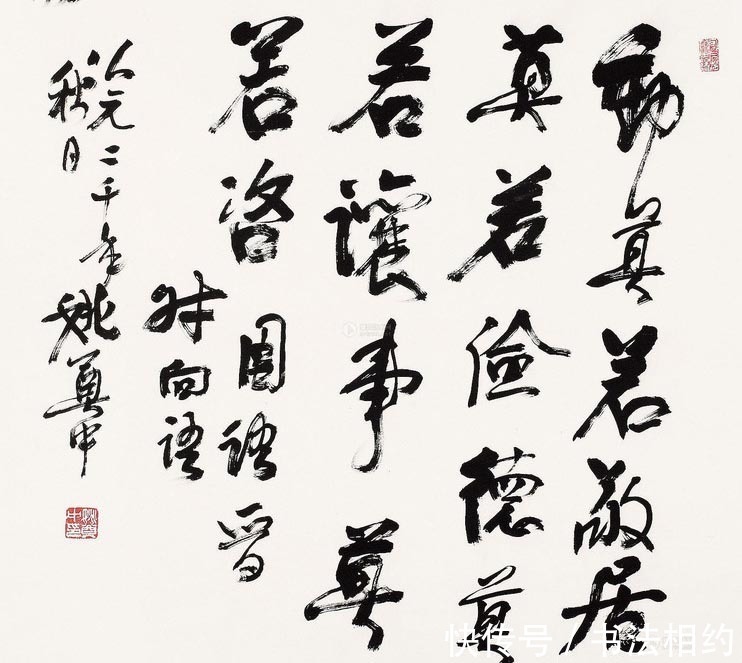 動莫若敬居
莫若儉德莫
若讓事莫
若咨國語晉
叔向語
公元二千年
秋日姚奠中
快传号 / 书法相约